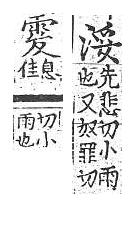 浽先悲切小雨
也又奴罪切
息
佳
切小
雨也